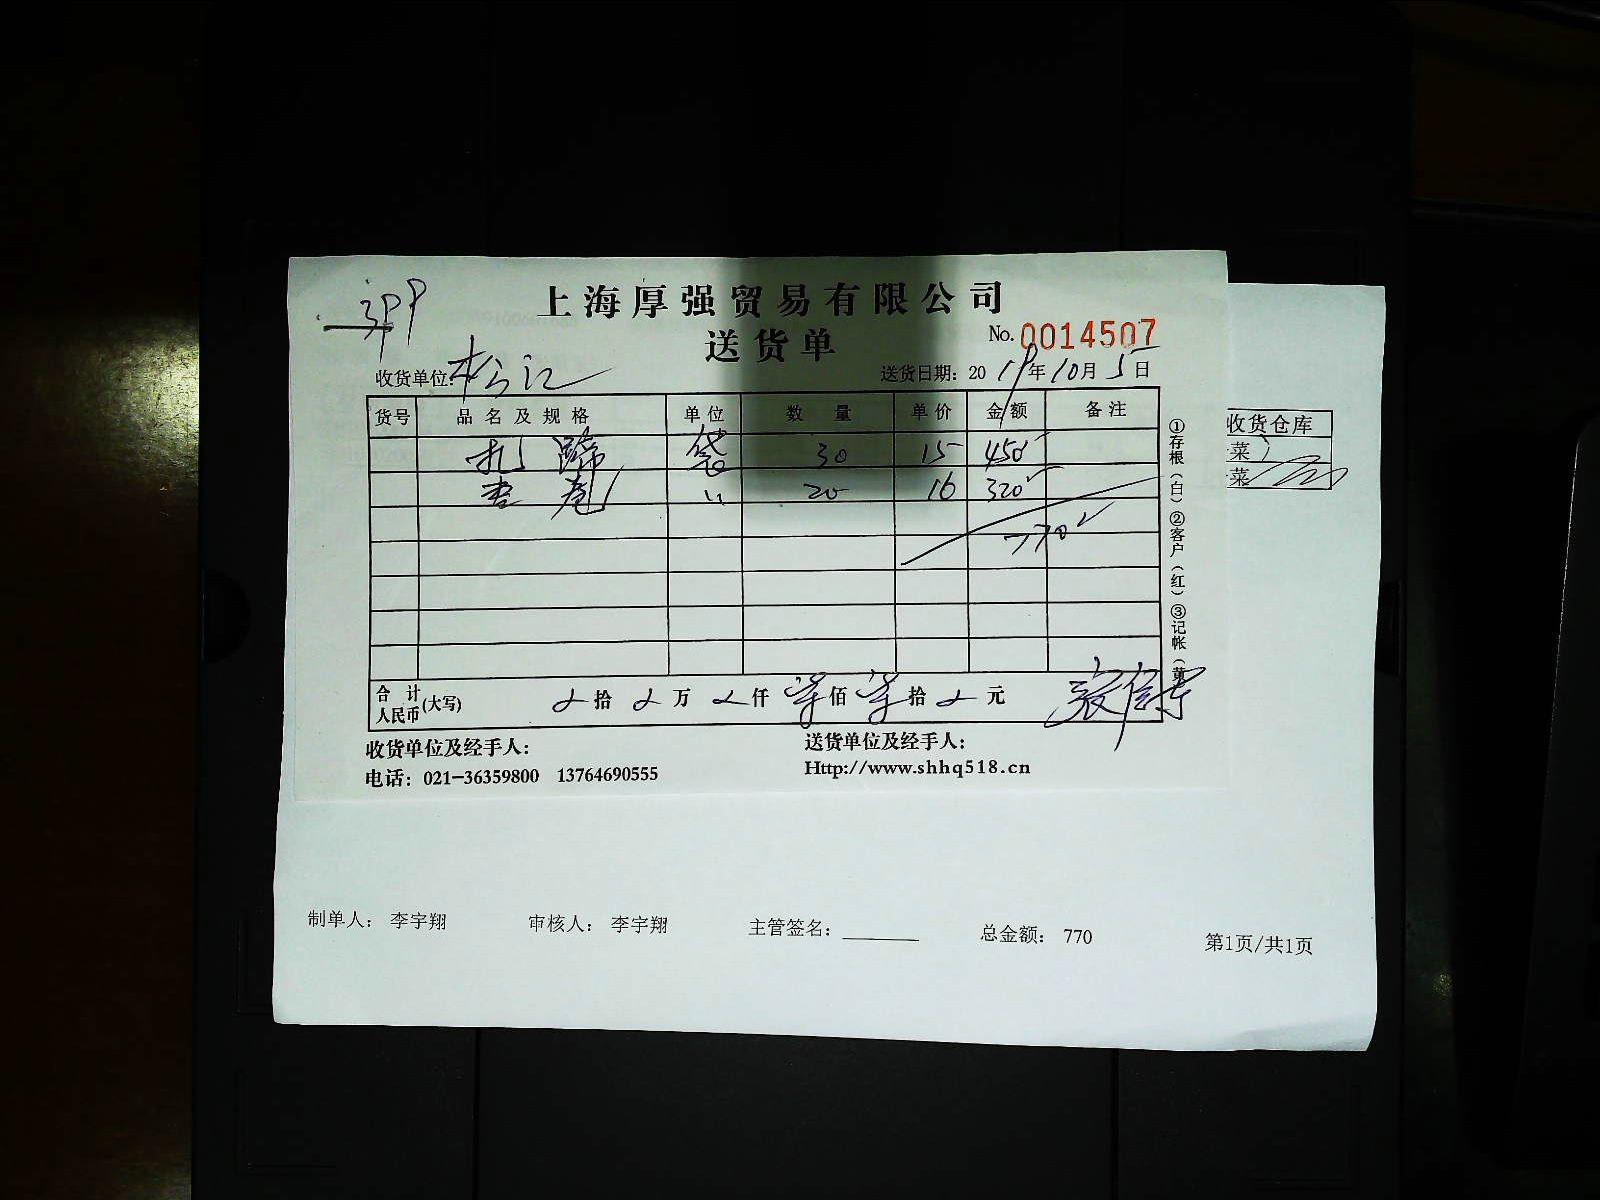 上海厚强贸易有限公司
送货单
No. 0014507
收货单位: 松江
送货日期: 2019年10月5日
货号 品名及规格 单位 数量 单价 金额 备注
扎蹄 袋 30 15 450
素 〃 20 16 320
770
合计人民币(大写) 拾 万 仟 柒佰 柒拾 元
①存根(白)②客户(红)③记帐(黄
收货单位及经手人:
送货单位及经手人:
电话: 021-36359800 13764690555
Http://www.shhq518.cn
收货仓库
菜
菜
制单人: 李宇翔 审核人: 李宇翔 主管签名: 总金额: 770 第1页/共1页